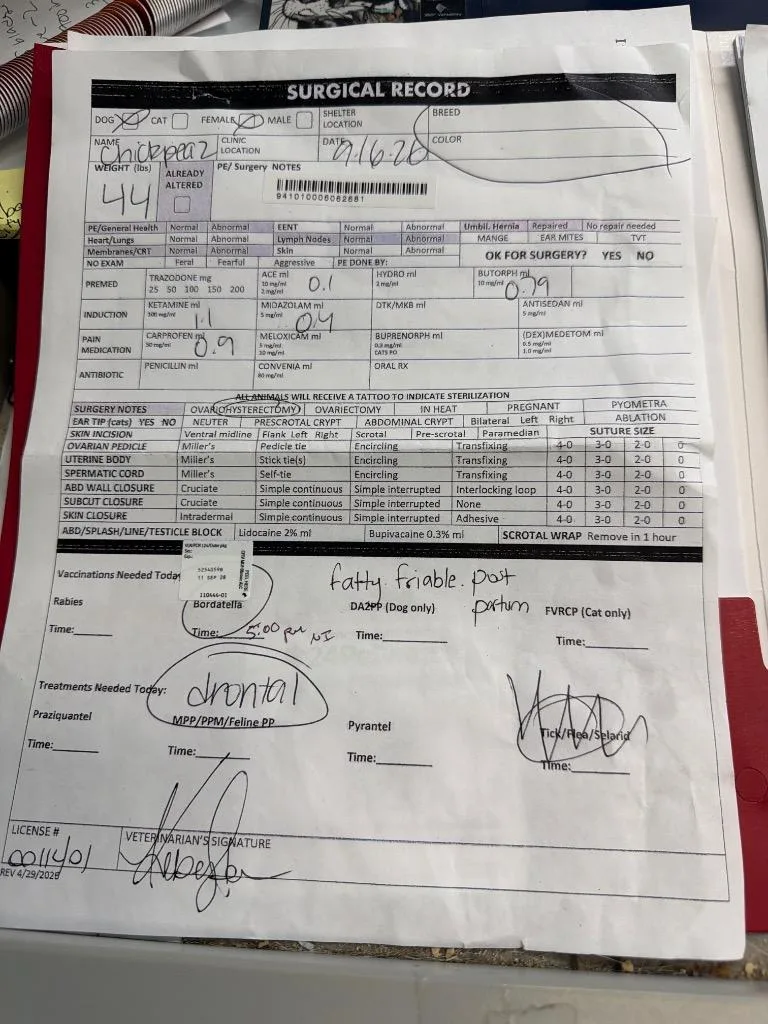 SURGICAL RECORD
DOG CAT FEMALE MALE SHELTER LOCATION BREED
NAME Chickpea2 CLINIC LOCATION DATE 9.16.26 COLOR
WEIGHT (lbs) 44 ALREADY ALTERED PE/ Surgery NOTES
941010006062681
PE/General Health Normal Abnormal EENT Normal Abnormal Umbil. Hernia Repaired No repair needed
Heart/Lungs Normal Abnormal Lymph Nodes Normal Abnormal MANGE EAR MITES TVT
Membranes/CRT Normal Abnormal Skin Normal Abnormal OK FOR SURGERY? YES NO
NO EXAM Feral Fearful Aggressive PE DONE BY:
PREMED TRAZODONE mg 25 50 100 150 200 ACE ml 10 mg/ml 2 mg/ml 0.1 HYDRO ml 2 mg/ml BUTORPH ml 10 mg/ml 0.79
INDUCTION KETAMINE ml 100 mg/ml 1.1 MIDAZOLAM ml 5 mg/ml 0.4 DTK/MKB ml ANTISEDAN ml 5 mg/ml
PAIN MEDICATION CARPROFEN ml 50 mg/ml 0.9 MELOXICAM ml 5 mg/ml 10 mg/ml BUPRENORPH ml 0.3 mg/ml CATS PO (DEX)MEDETOM ml 0.5 mg/ml 1.0 mg/ml
ANTIBIOTIC PENICILLIN ml CONVENIA ml 80 mg/ml ORAL RX
ALL ANIMALS WILL RECEIVE A TATTOO TO INDICATE STERILIZATION
SURGERY NOTES OVARIOHYSTERECTOMY OVARIECTOMY IN HEAT PREGNANT PYOMETRA
EAR TIP (cats) YES NO NEUTER PRESCROTAL CRYPT ABDOMINAL CRYPT Bilateral Left Right ABLATION
SKIN INCISION Ventral midline Flank Left Right Scrotal Pre-scrotal Paramedian SUTURE SIZE
OVARIAN PEDICLE Miller's Pedicle tie Encircling Transfixing 4-0 3-0 2-0 0
UTERINE BODY Miller's Stick tie(s) Encircling Transfixing 4-0 3-0 2-0 0
SPERMATIC CORD Miller's Self-tie Encircling Transfixing 4-0 3-0 2-0 0
ABD WALL CLOSURE Cruciate Simple continuous Simple interrupted Interlocking loop 4-0 3-0 2-0 0
SUBCUT CLOSURE Cruciate Simple continuous Simple interrupted None 4-0 3-0 2-0 0
SKIN CLOSURE Intradermal Simple continuous Simple interrupted Adhesive 4-0 3-0 2-0 0
ABD/SPLASH/LINE/TESTICLE BLOCK Lidocaine 2% ml Bupivacaine 0.3% ml SCROTAL WRAP Remove in 1 hour
11 SEP 26
110444-01
Vaccinations Needed Today fatty. friable. post partum
Rabies Bordatella DA2PP (Dog only) FVRCP (Cat only)
Time: Time: 5:00 pm NI Time: Time:
Treatments Needed Today: drontal
Praziquantel MPP/PPM/Feline PP Pyrantel Tick/Flea/Selarid
Time: Time: Time: Time:
LICENSE # VETERINARIAN'S SIGNATURE
0011401
REV 4/29/2026